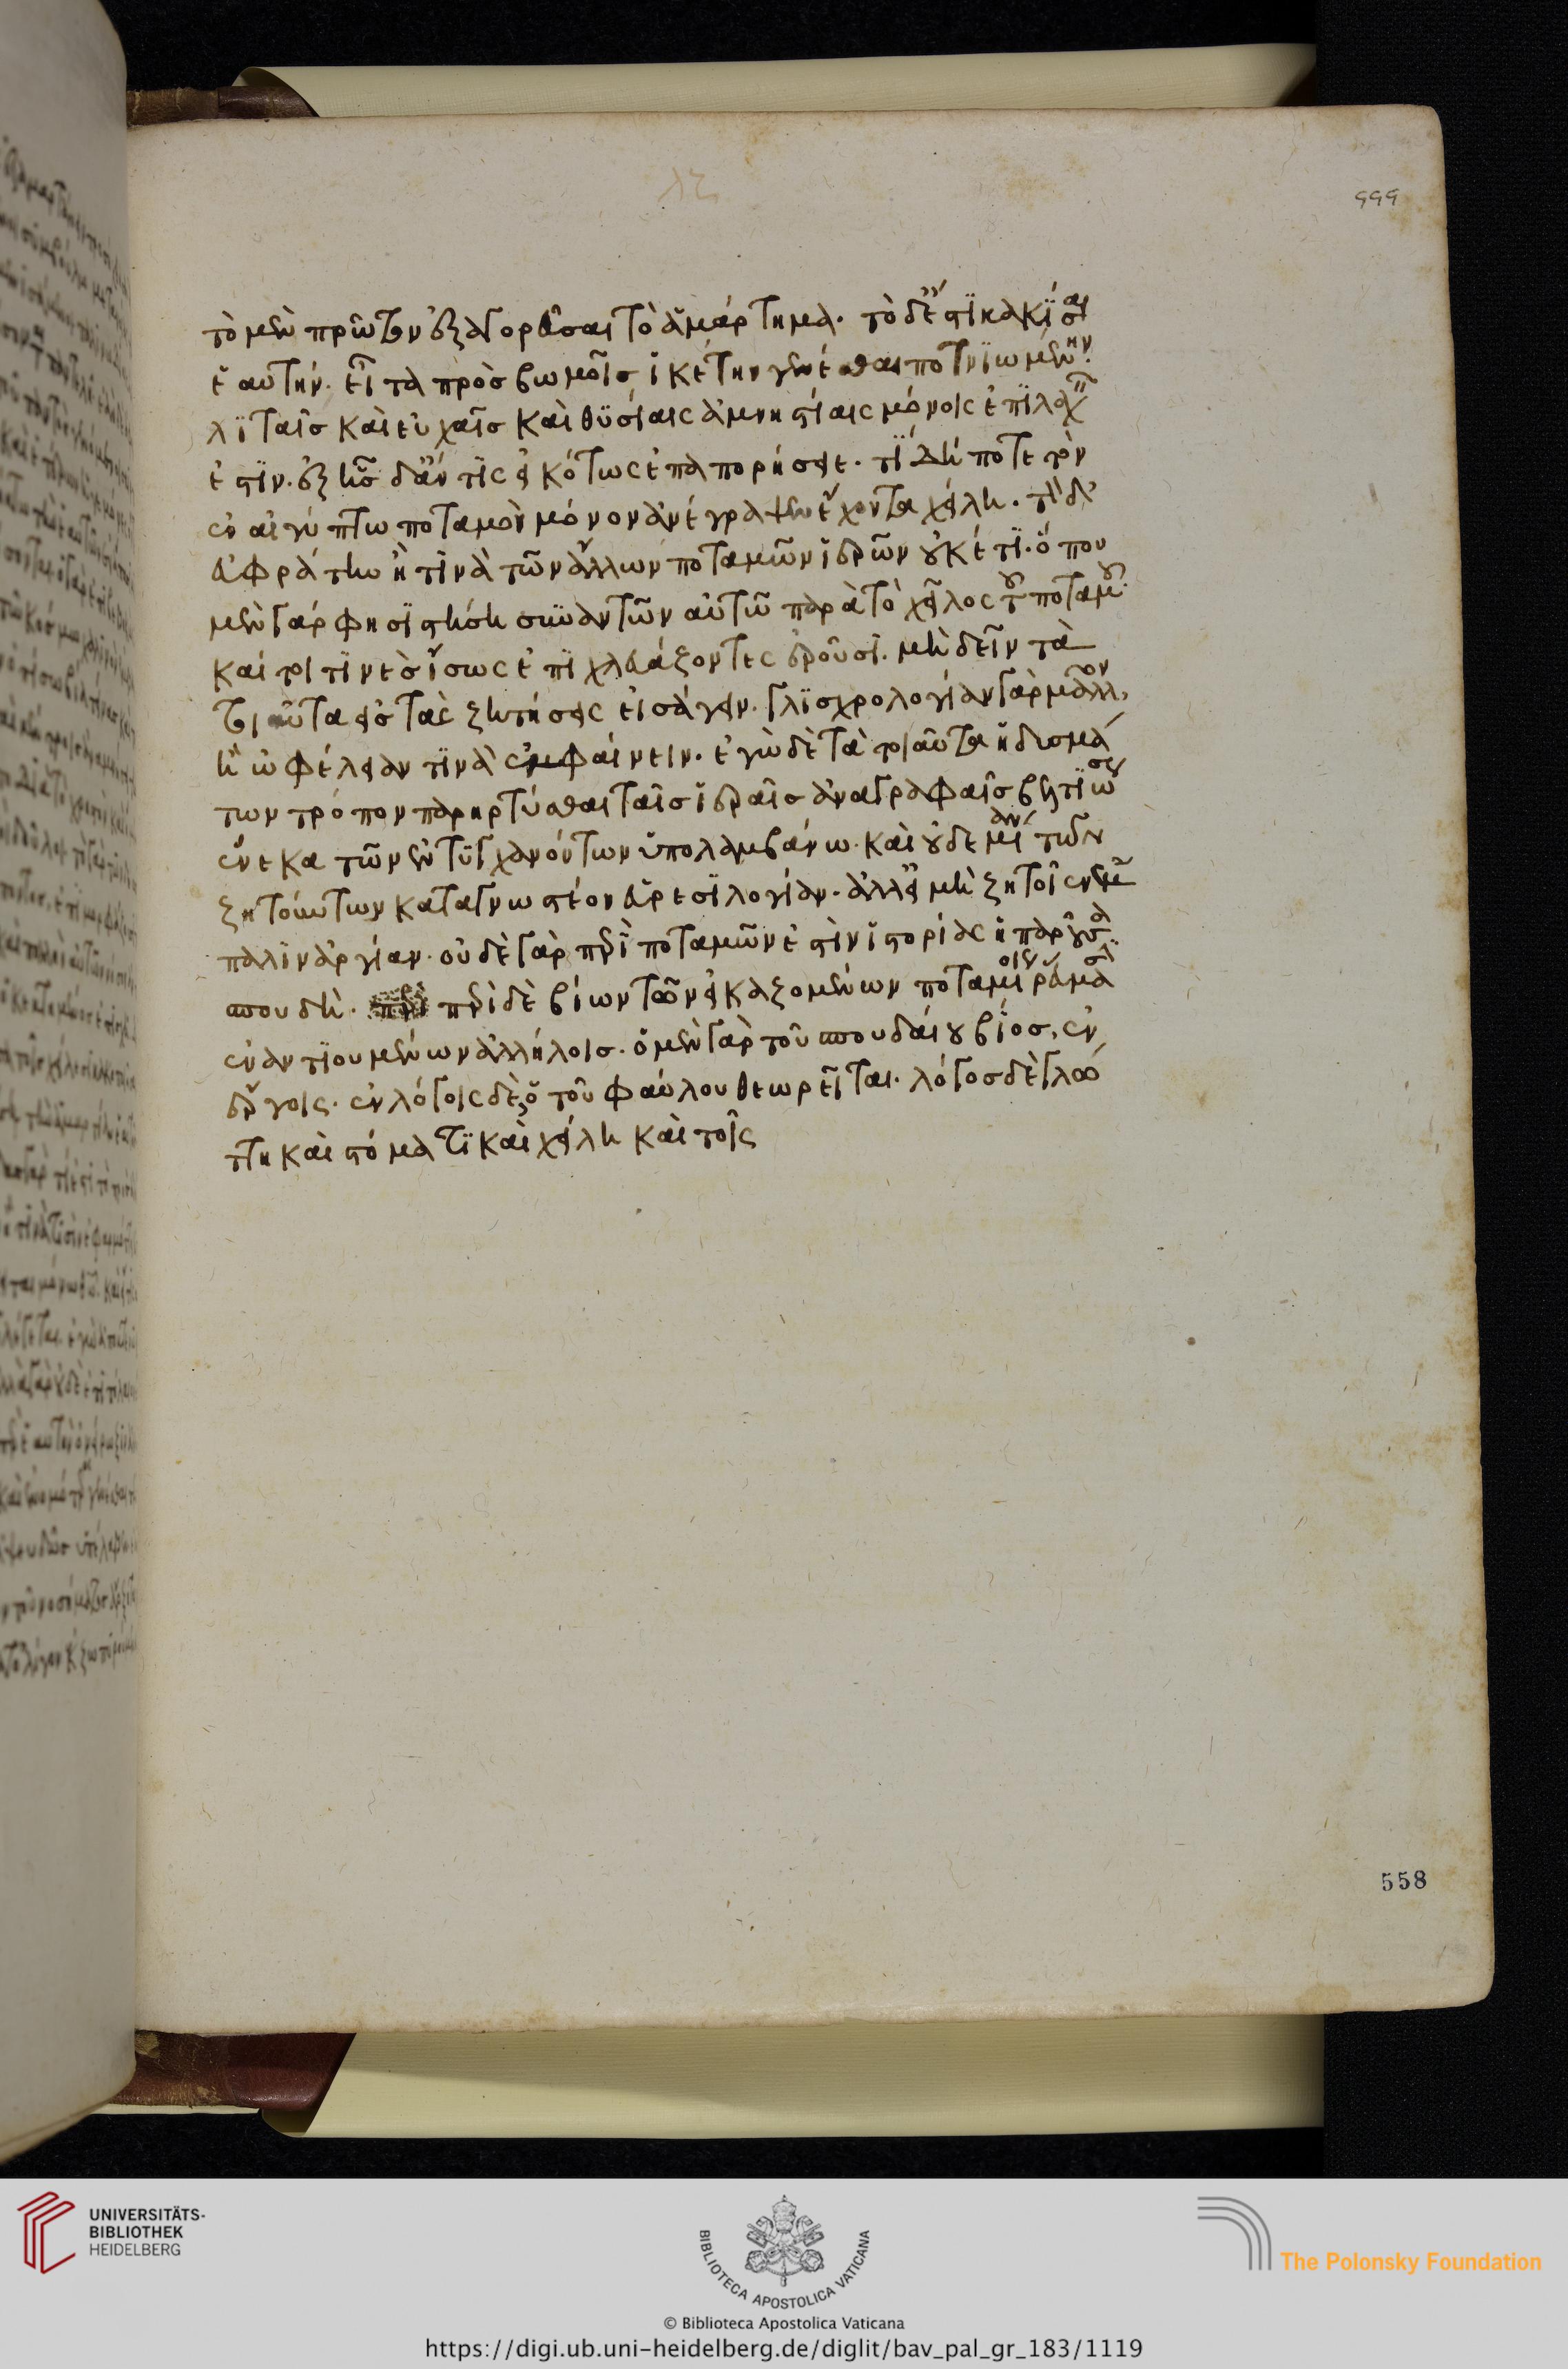 555
τὸ μὲν πρῶτον ἐξαγορεῦσαι τὸ ἁμάρτημα· τὸ δέ ἐστι κακίσαι
ἑαυτήν. εἶτα πρὸς βωμοῖς ἱκέτην γενέσθαι ποτνιωμένην.
λιταῖς καὶ εὐχαῖς καὶ θυσίαις ἀμνηστίαις μόνοις ἐπιλαχεῖν
ἐστιν. ἑξῆς δ' ἄν τις εἰκότως ἐπαπορήσειε. τί δή ποτε τὸν
ἐν αἰγύπτω ποταμὸν μόνον ἀνέγραψεν ἔχοντα χείλη. τὸν δ'
εὐφράτην ἤ τινα τῶν ἄλλων ποταμῶν ἱερῶν οὐκέτι. ὅπου
μὲν γάρ φησι στήση συναντῶν αὐτῶ παρὰ τὸ χεῖλος τοῦ ποταμοῦ.
καί τοι τινὲς ἴσως ἐπιχλευάζοντες ἐροῦσι. μὴ δεῖν τὰ
τοιαῦτα εἰς τὰς ζητήσεις εἰσάγειν. γλισχρολογίαν γὰρ μᾶλλον,
ἢ ὠφέλειαν τινὰ ἐμφαίνειν. ἐγὼ δὲ τὰ τοιαῦτα ἡδυσμά
των τρόπον παρηρτύσθαι ταῖς ἱεραῖς ἀναγραφαῖς βελτιώσεως
ἕνεκα τῶν ἐντυγχανόντων ὑπολαμβάνω. καὶ οὐδεμίαν τῶν
ζητούντων καταγνωστέον εὑρεσιλογίαν. ἀλλ' εἰ μὴ ζητοῖεν ἔμ
παλιν ἀργίαν. οὐδὲ γὰρ περὶ ποταμῶν ἐστὶν ἱστορίας ἡ παροῦσα
σπουδή. περὶ δὲ βίων τῶν εἰκαζομένων ποταμίοις ῥεύμασιν
ἐναντιουμένων ἀλλήλοις. ὁ μὲν γὰρ τοῦ σπουδαίου βίος, ἐν
ἔργοις. ἐν λόγοις δὲ, ὁ τοῦ φαύλου θεωρεῖται. λόγος δὲ γλώ
ττη καὶ στόματι καὶ χείλη καὶ τοῖς
558
UNIVERSITÄTS-
BIBLIOTHEK
HEIDELBERG
BIBLIOTECA APOSTOLICA VATICANA
The Polonsky Foundation
© Biblioteca Apostolica Vaticana
https://digi.ub.uni-heidelberg.de/diglit/bav_pal_gr_183/1119